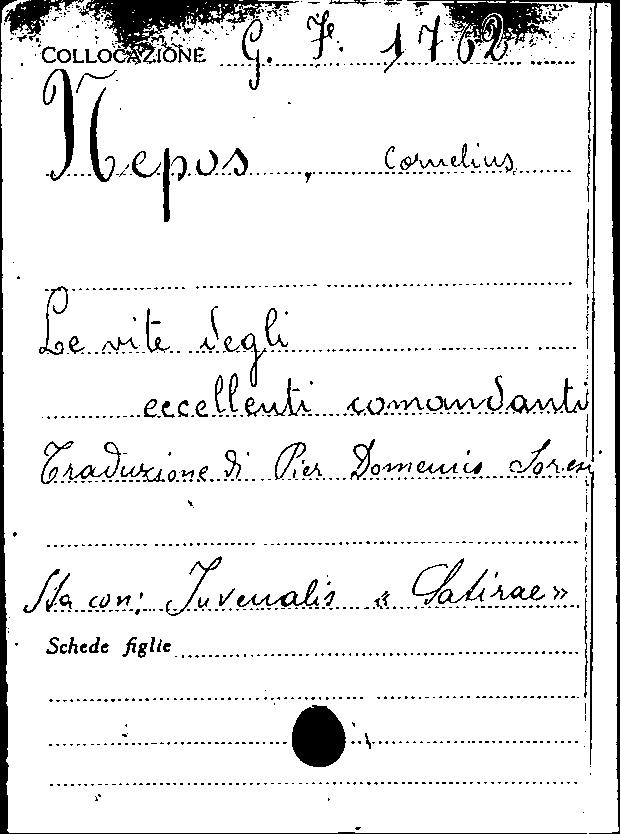 COLLOCAZIONE G. F. 1762
Nepos, Cornelius
Le vite degli
eccellenti comandanti
Traduzione di Pier Domenico Soresi
Sta con: Juvenalis « Satirae »
Schede figlie